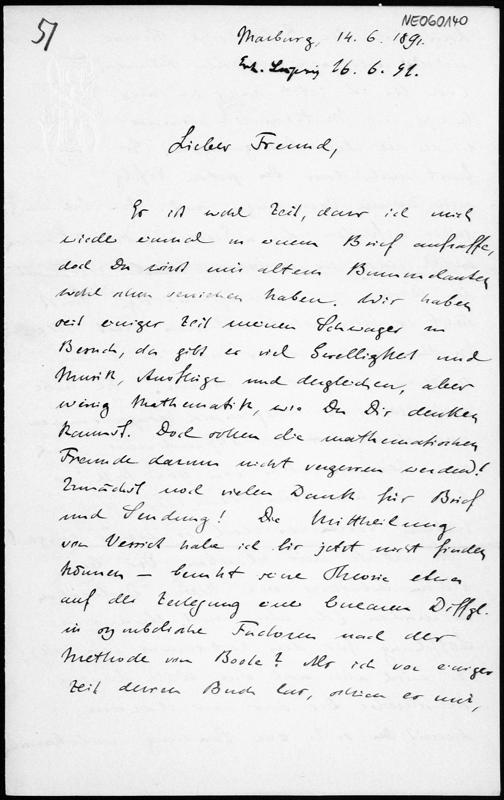 NEO60140
51
Marburg, 14. 6. 1891.
Erh. Leipzig 16. 6. 91.
Lieber Freund,
Es ist wohl Zeit, dass ich mich
wieder einmal zu einem Brief aufraffe,
doch Du wirst mir altem Bummelanten
wohl schon verziehen haben. Wir haben
seit einiger Zeit meinen Schwager zu
Besuch, da gibt es viel Geselligkeit und
Musik, Ausflüge und dergleichen, aber
wenig Mathematik, wie Du Dir denken
kannst. Doch sollen die mathematischen
Freunde darum nicht vergessen werden!
Zunächst noch vielen Dank für Brief
und Sendung! Die Mittheilung
von habe ich bis jetzt nicht finden
können — beruht seine Theorie etwa
auf der Zerlegung einer linearen Diffgl.
in symbolische Factoren nach der
Methode von Boole? Als ich vor einiger
Zeit dessen Buch las, schien es mir,